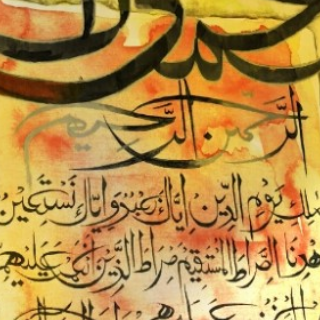 الرَّحمنِ الرَّحيم
ملك يَومِ الدِّينِ اِيَّاكَ نَعبُدُ وَ اِيَّاكَ نَستَعين
هدِنَا الصِّرَاطَ المُستَقيمَ صِرَاطَ الَّذينَ اَنعَمتَ عَلَيهِم